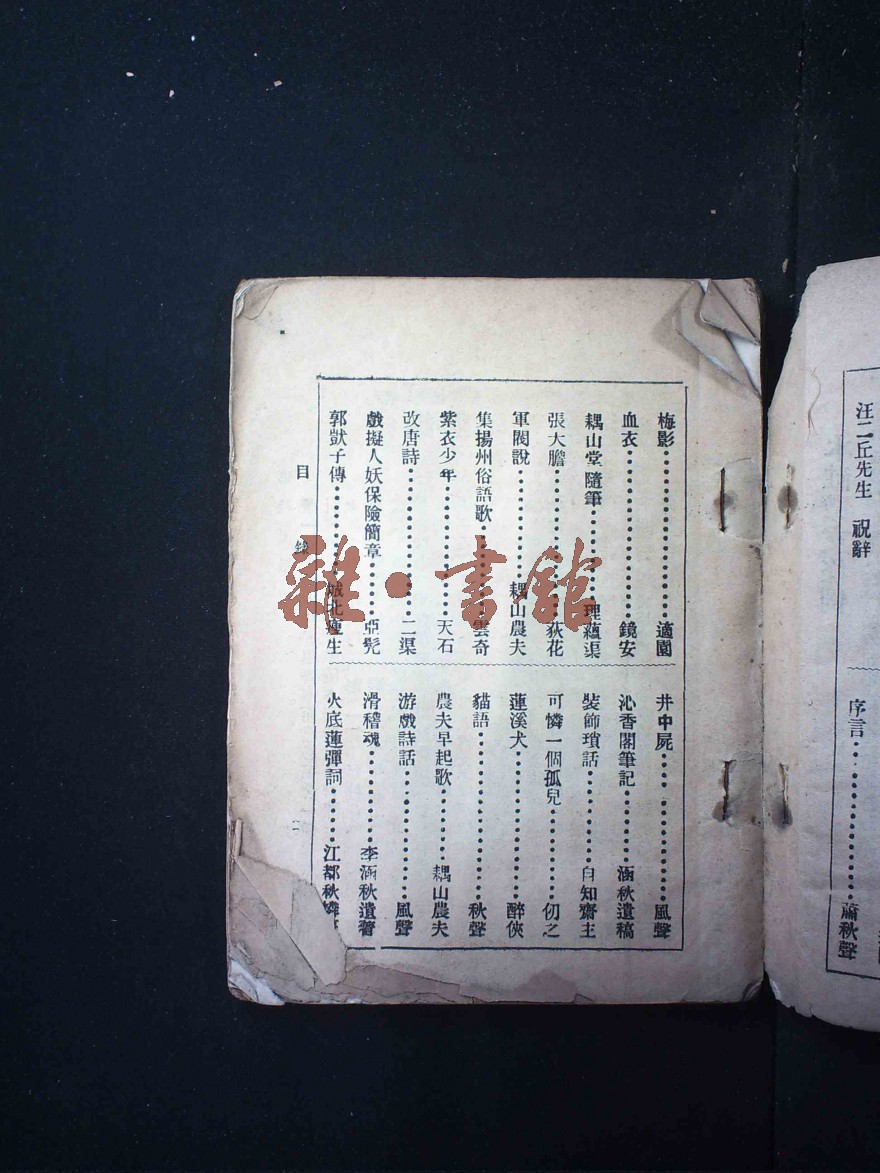 汪二丘先生 祝辭
序言 蕭秋聲
梅影 適園
血衣 鏡安
耦山堂隨筆 理蘊渠
張大膽 荻花
軍閥說 耦山農夫
集揚州俗語歌 雲奇
紫衣少年 天石
改唐詩 二渠
戲擬人妖保險簡章 亞髡
郭獃子傳 城北瘦生
井中屍 風聲
沁香閣筆記 涵秋遺稿
裝飾瑣話 自知齋主
可憐一個孤兒 仞之
蓮溪犬 醉俠
貓語 秋聲
農夫早起歌 耦山農夫
游戲詩話 風聲
滑稽魂 李涵秋遺著
火底蓮彈詞 江都秋
目
二
雜·書館